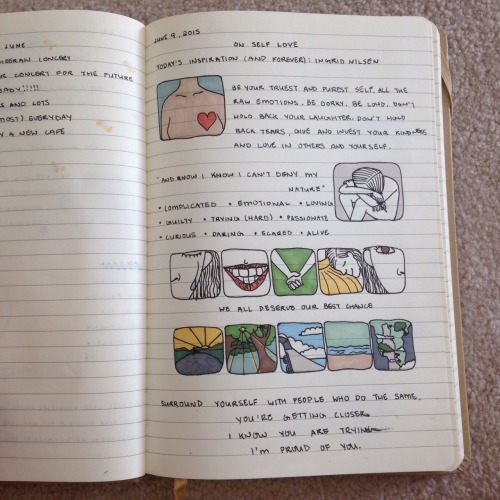 JUNE
CONCERT
CONCERT FOR THE FUTURE
BABY!!!!!
AND LOTS
EVERYDAY
A NEW CAFE
JUNE 9, 2015
ON SELF LOVE
TODAY'S INSPIRATION (AND FOREVER): INGRID NILSEN
BE YOUR TRUEST AND PUREST SELF. ALL THE
RAW EMOTIONS. BE DORKY. BE LOUD. DON'T
HOLD BACK YOUR LAUGHTER. DON'T HOLD
BACK TEARS. GIVE AND INVEST YOUR KINDNESS
AND LOVE IN OTHERS AND YOURSELF.
"AND KNOW I KNOW I CAN'T DENY MY
NATURE"
• COMPLICATED • EMOTIONAL • LOVING
• GUILTY • TRYING (HARD) • PASSIONATE
• CURIOUS • DARING • SCARED • ALIVE
WE ALL DESERVE OUR BEST CHANCE
SURROUND YOURSELF WITH PEOPLE WHO DO THE SAME.
YOU'RE GETTING CLOSER
I KNOW YOU ARE TRYING
I'M PROUD OF YOU.